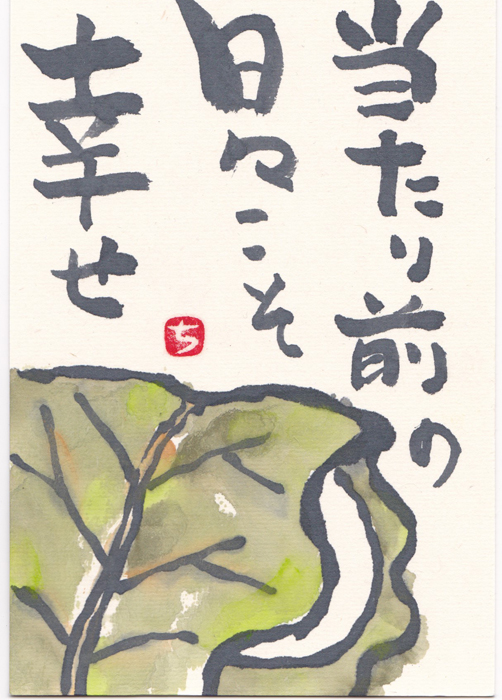 当たり前の
日々こそ
幸せ
ち